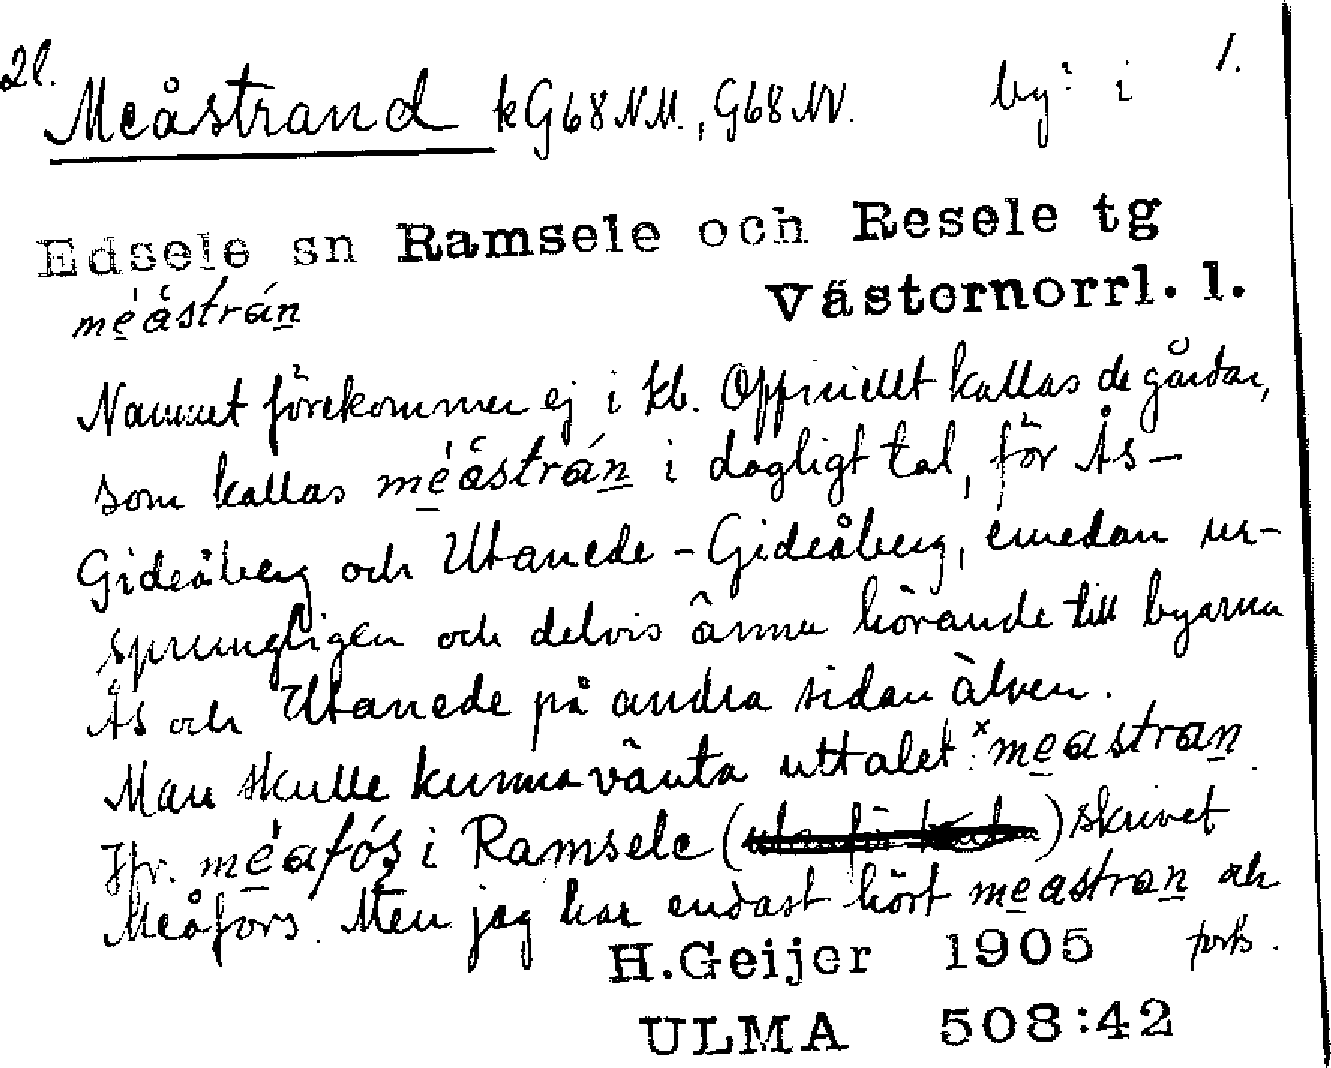 2l. 1.
Meåstrand kG68NM., G68NV. by? i
Edsele sn Ramsele och Resele tg
Västernorrl. l.
méåstrán
Namnet förekommer ej i kb. Officiellt kallas de gårdar,
som kallas méåstrán i dagligt tal, för Ås-
Gideåberg och Utanede-Gideåberg, emedan ur-
sprungligen och delvis ännu hörande till byarna
Ås och Utanede på andra sidan älven.
Man skulle kunna vänta uttalet: ˣmeastran.
Jfr. méafós i Ramsele ( ) skrivet
Meåfors. Men jag har endast hört meastran
H.Geijer 1905 forts.
ULMA 508:42